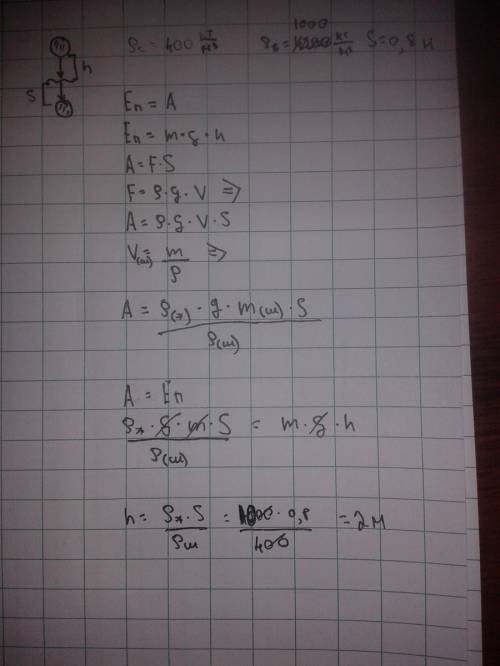 ρс = 400 кг/м³ ρв = 1000 кг/м³ S = 0,8 м
h
S
Eп = A
Eп = m·g·h
A = F·S
F = ρ·g·V =>
A = ρ·g·V·S
V(ш) = m/ρ =>
A = ρ(ж)·g·m(ш)·S / ρ(ш)
A = Eп
ρж·g·m·S / ρ(ш) = m·g·h
h = ρж·S / ρш = 1000·0,8 / 400 = 2м